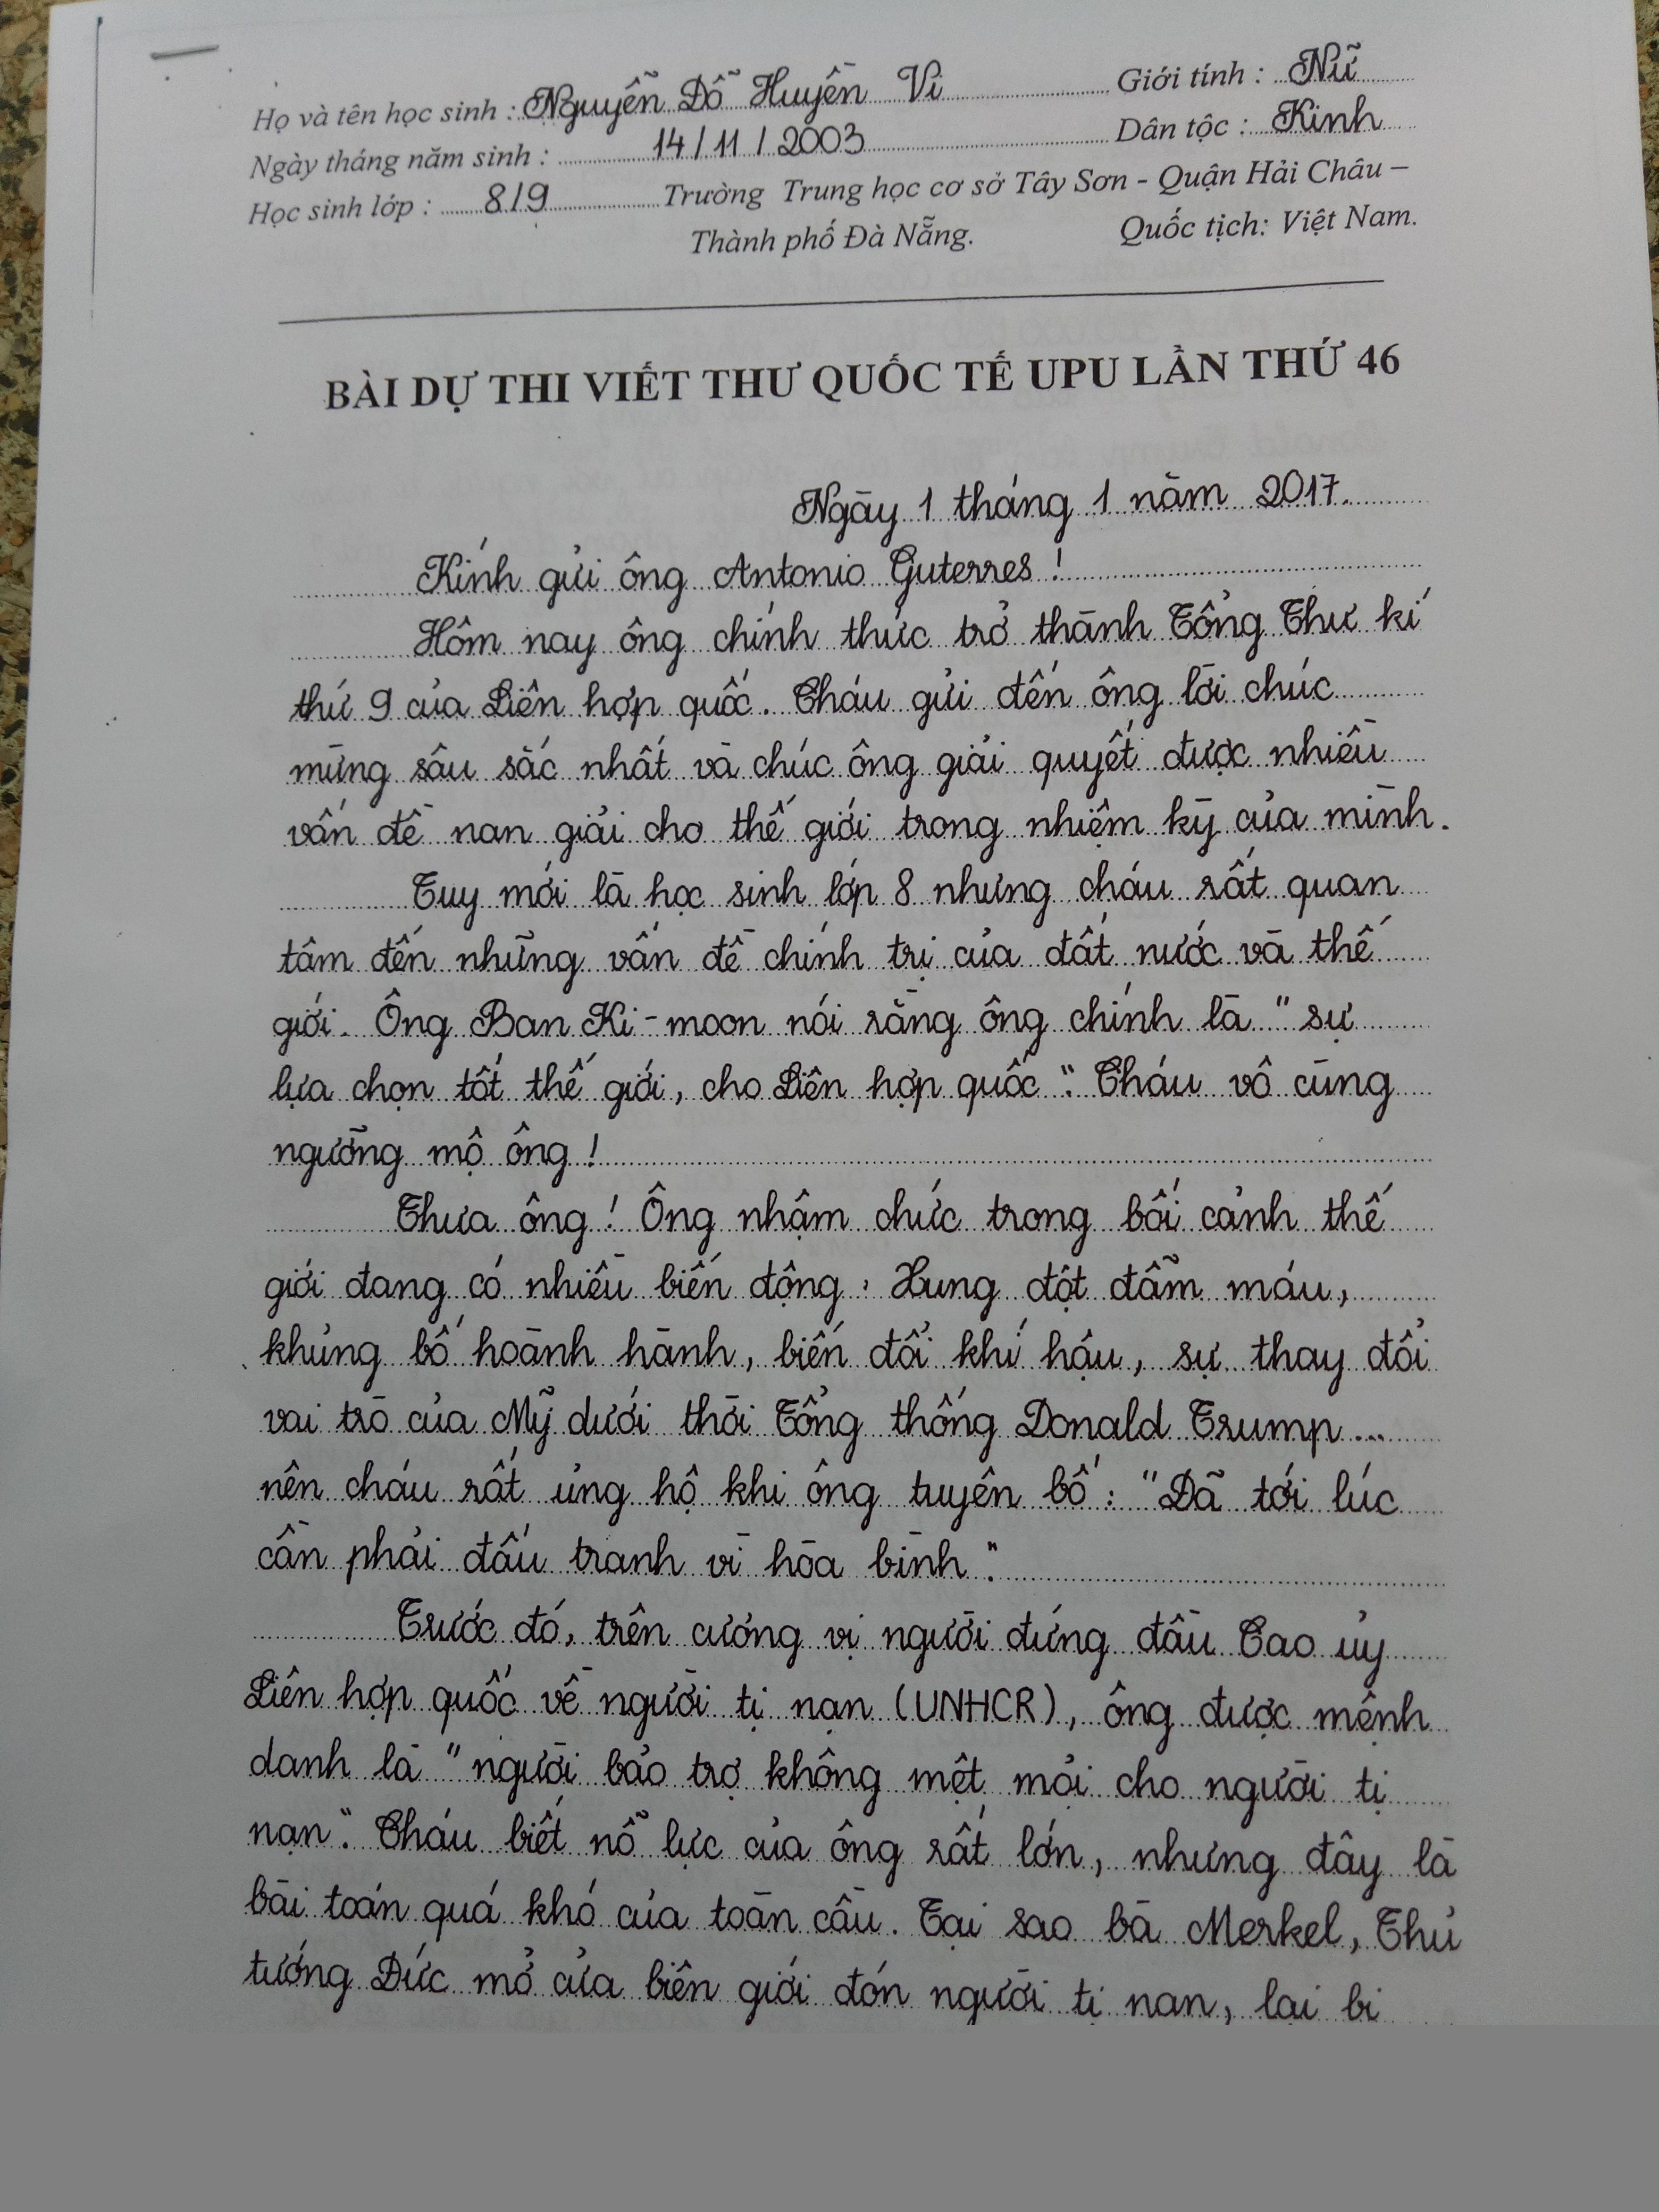 Họ và tên học sinh : Nguyễn Đỗ Huyền Vi Giới tính : Nữ
Ngày tháng năm sinh : 14/11/2003 Dân tộc : Kinh
Học sinh lớp : 8/9 Trường Trung học cơ sở Tây Sơn - Quận Hải Châu –
Thành phố Đà Nẵng. Quốc tịch: Việt Nam.
BÀI DỰ THI VIẾT THƯ QUỐC TẾ UPU LẦN THỨ 46
Ngày 1 tháng 1 năm 2017.
Kính gửi ông Antonio Guterres !
Hôm nay ông chính thức trở thành Tổng Thư kí
thứ 9 của Liên hợp quốc. Cháu gửi đến ông lời chúc
mừng sâu sắc nhất và chúc ông giải quyết được nhiều
vấn đề nan giải cho thế giới trong nhiệm kỳ của mình.
Tuy mới là học sinh lớp 8 nhưng cháu rất quan
tâm đến những vấn đề chính trị của đất nước và thế
giới. Ông Ban Ki-moon nói rằng ông chính là "sự
lựa chọn tốt thế giới, cho Liên hợp quốc". Cháu vô cùng
ngưỡng mộ ông !
Thưa ông ! Ông nhậm chức trong bối cảnh thế
giới đang có nhiều biến động : Xung đột đẫm máu,
khủng bố hoành hành, biến đổi khí hậu, sự thay đổi
vai trò của Mỹ dưới thời Tổng thống Donald Trump...
nên cháu rất ủng hộ khi ông tuyên bố : "Đã tới lúc
cần phải đấu tranh vì hòa bình".
Trước đó, trên cương vị người đứng đầu Cao ủy
Liên hợp quốc về người tị nạn (UNHCR), ông được mệnh
danh là "người bảo trợ không mệt mỏi cho người tị
nạn". Cháu biết nỗ lực của ông rất lớn, nhưng đây là
bài toán quá khó của toàn cầu. Tại sao bà Merkel, Thủ
tướng Đức mở cửa biên giới đón người tị nạn, lại bị